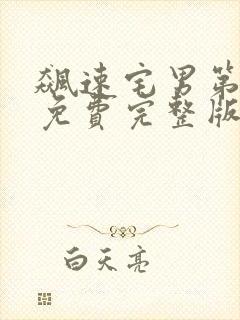 飆速宅男第
免費完整版
白天亮